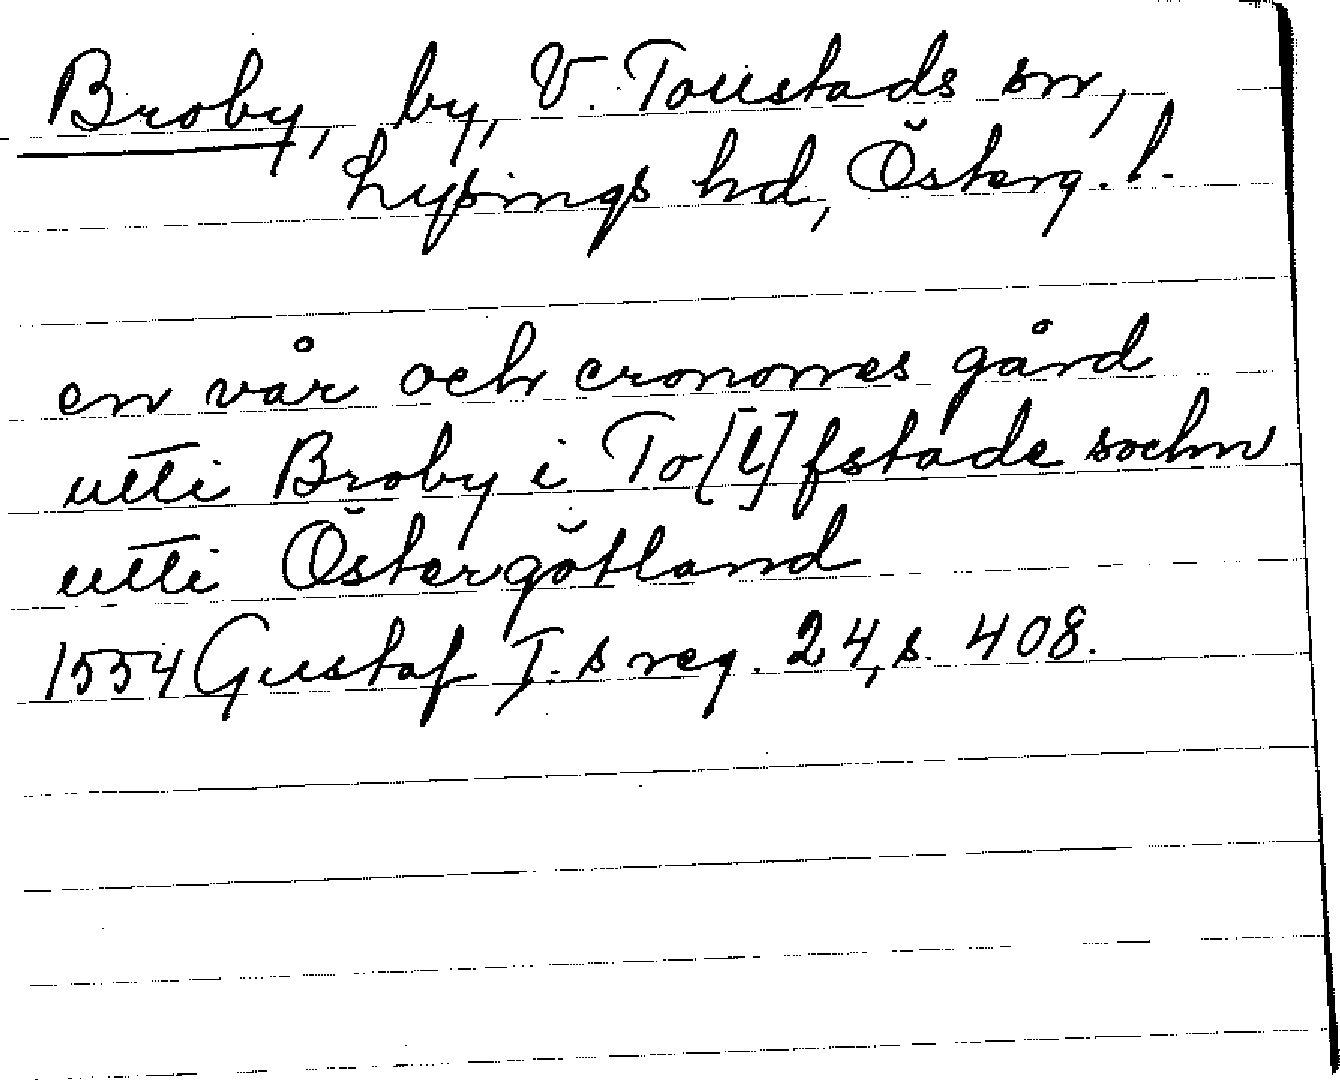 Broby, by, V. Tollstads sn,
Lysings hd, Österg. l.
en vår och cronones gård
utti Broby i To[l]fstade sochn
utti Östergötland
1554 Gustaf I.s reg. 24, s. 408.